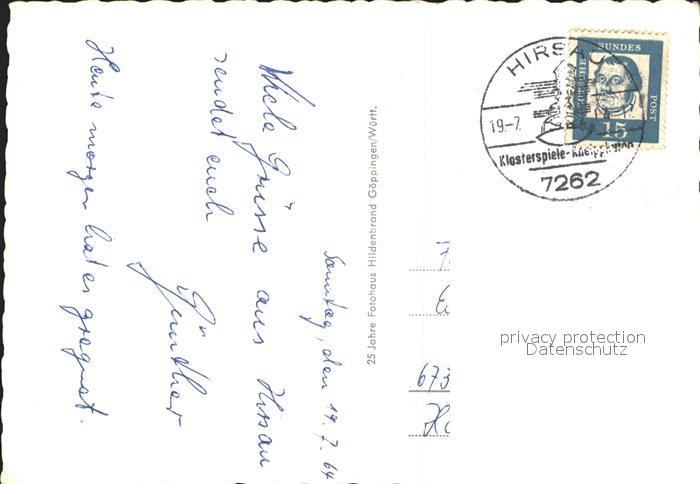 Sonntag, den 19.7.64
Viele Grüsse aus Hirsau
sendet euch
Günther
Heute morgen hat es geregnet.
25 Jahre Fotohaus Hildenbrand Göppingen/Württ.
HIRSAU
19.-7.
Klosterspiele-
7262
DEUTSCHE
BUNDES
POST
15
673
privacy protection
Datenschutz